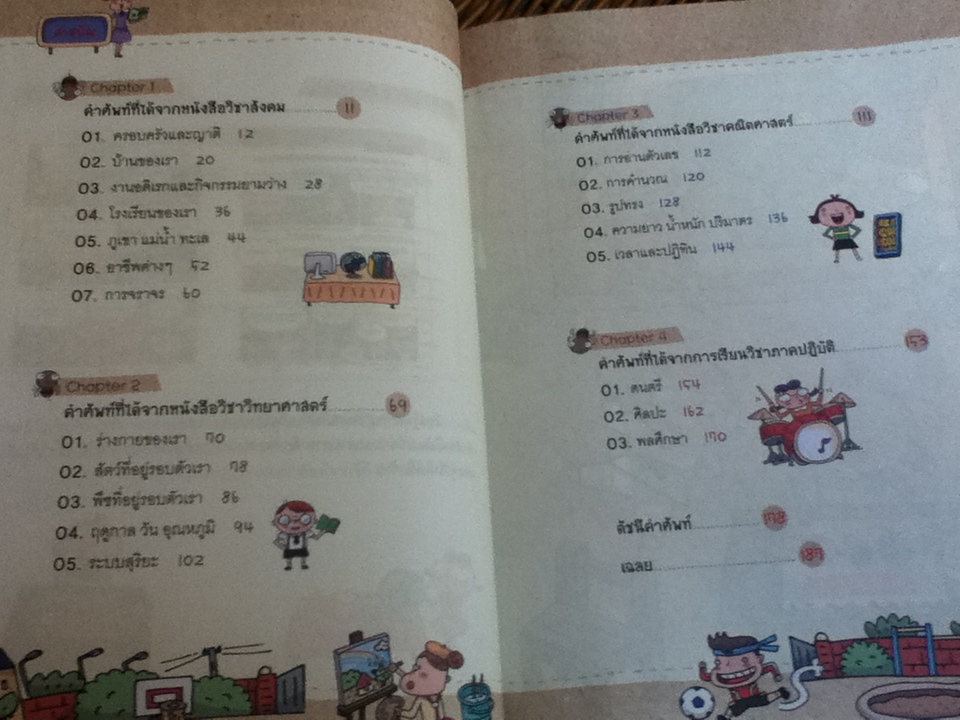 สารบัญ
Chapter 1
คำศัพท์ที่ได้จากหนังสือวิชาสังคม 11
01. ครอบครัวและญาติ 12
02. บ้านของเรา 20
03. งานอดิเรกและกิจกรรมยามว่าง 28
04. โรงเรียนของเรา 36
05. ภูเขา แม่น้ำ ทะเล 44
06. อาชีพต่างๆ 52
07. การจราจร 60
Chapter 2
คำศัพท์ที่ได้จากหนังสือวิชาวิทยาศาสตร์ 69
01. ร่างกายของเรา 70
02. สัตว์ที่อยู่รอบตัวเรา 78
03. พืชที่อยู่รอบตัวเรา 86
04. ฤดูกาล วัน อุณหภูมิ 94
05. ระบบสุริยะ 102
Chapter 3
คำศัพท์ที่ได้จากหนังสือวิชาคณิตศาสตร์ 111
01. การอ่านตัวเลข 112
02. การคำนวณ 120
03. รูปทรง 128
04. ความยาว น้ำหนัก ปริมาตร 136
05. เวลาและปฏิทิน 144
Chapter 4
คำศัพท์ที่ได้จากการเรียนวิชาภาคปฏิบัติ 153
01. ดนตรี 154
02. ศิลปะ 162
03. พลศึกษา 170
ดัชนีคำศัพท์ 178
เฉลย 187